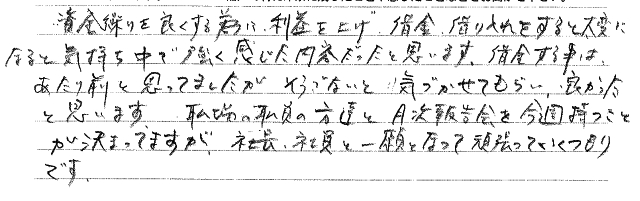 資金繰りを良くする為に、利益を上げ、借金、借り入れをすると大変に
なると気持ち中で強く感じた内容だったと思います。借金する事は、
あたり前と思ってましたが そうでないと 気づかせてもらい、良かった
と思います 職場の職員の方達と 月次報告会を今回持つこと
が決まってますが、社長、社員と一願となって頑張っていくつもり
です。